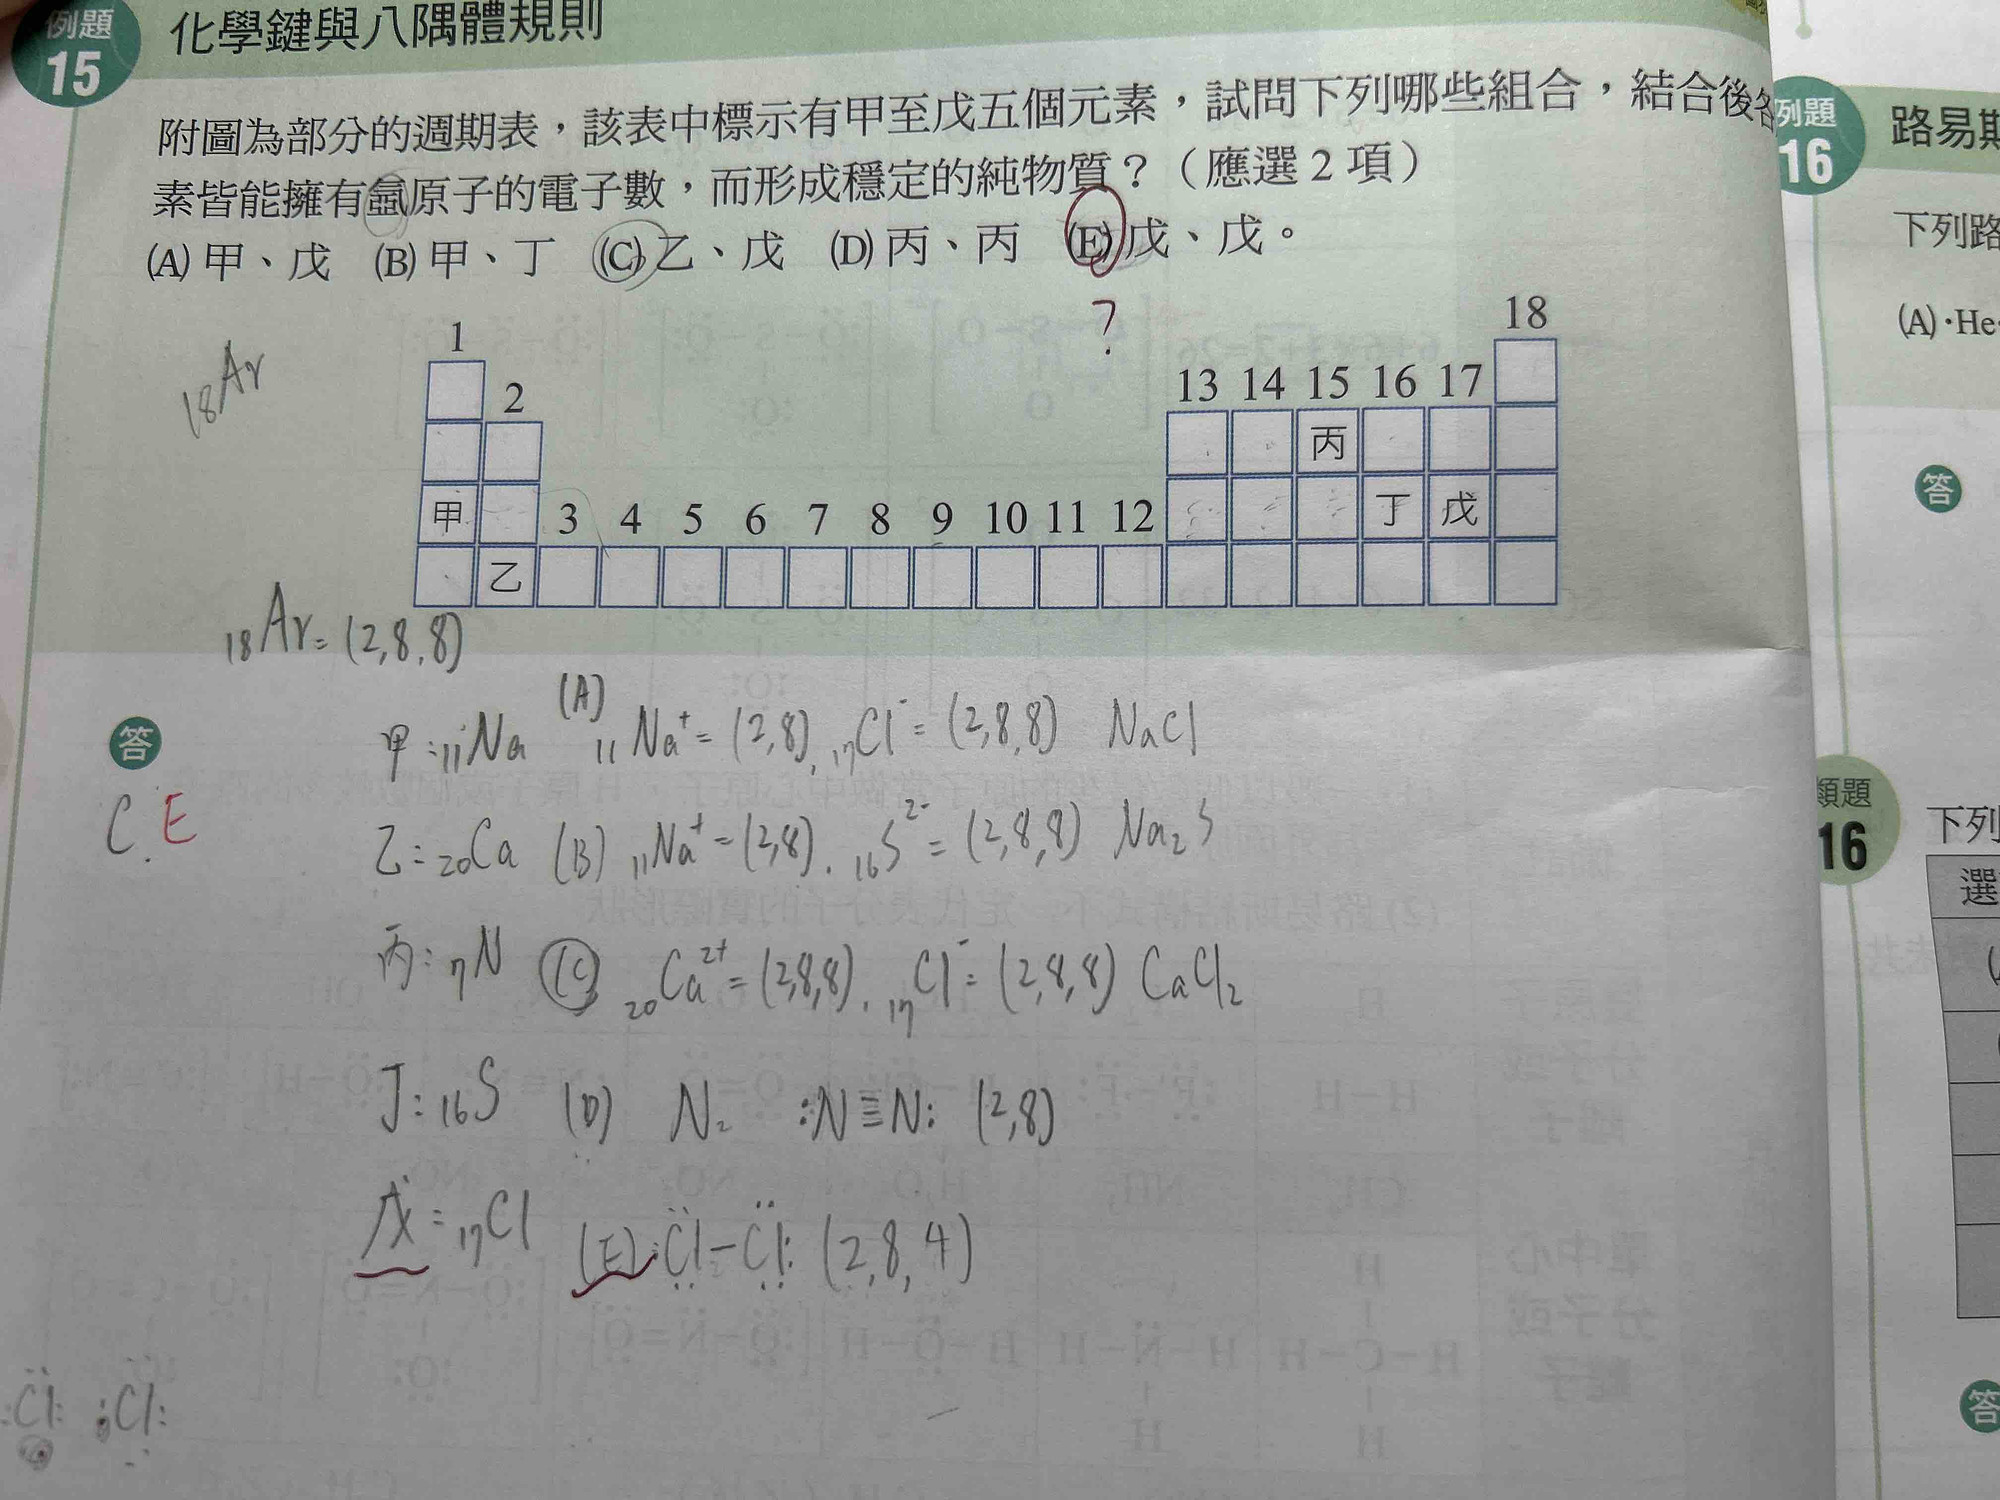 例題
15
化學鍵與八隅體規則
附圖為部分的週期表,該表中標示有甲至戊五個元素,試問下列哪些組合,結合後各
素皆能擁有氬原子的電子數,而形成穩定的純物質?(應選2項)
(A) 甲、戊 (B) 甲、丁 (C) 乙、戊 (D) 丙、丙 (E) 戊、戊。
?
18Ar
1 18
2 13 14 15 16 17
丙
甲 3 4 5 6 7 8 9 10 11 12 丁 戊
乙
18Ar=(2,8,8)
答
C.E
甲:11Na (A) 11Na⁺=(2,8),17Cl⁻=(2,8,8) NaCl
乙:20Ca (B) 11Na⁺=(2,8).16S²⁻=(2,8,8) Na₂S
丙:7N (C) 20Ca²⁺=(2,8,8).17Cl⁻=(2,8,8) CaCl₂
丁:16S (D) N₂ :N≡N: (2,8)
戊:17Cl (E) :Cl-Cl: (2,8,4)
:Cl: :Cl:
例題
16
路易斯
下列路
(A)·He·
答
類題
16
下列
選
答